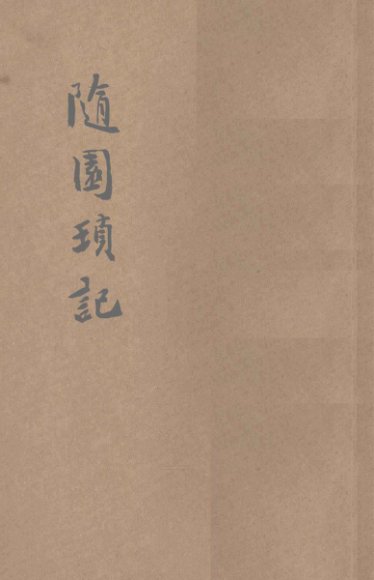 隨園瑣記